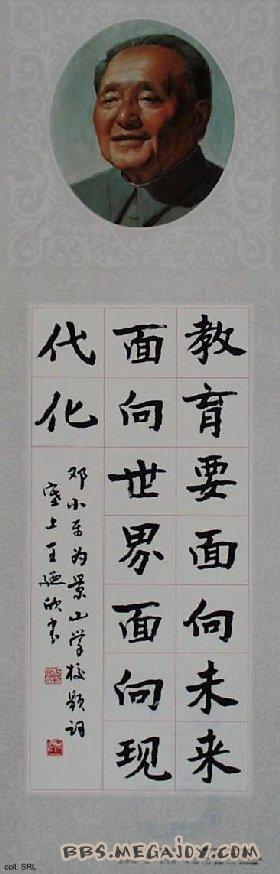 教育要面向未来
面向世界面向现
代化
邓小平为景山学校题词
塞上王欣书
coll. SRL
BBS.MEGAJOY.COM